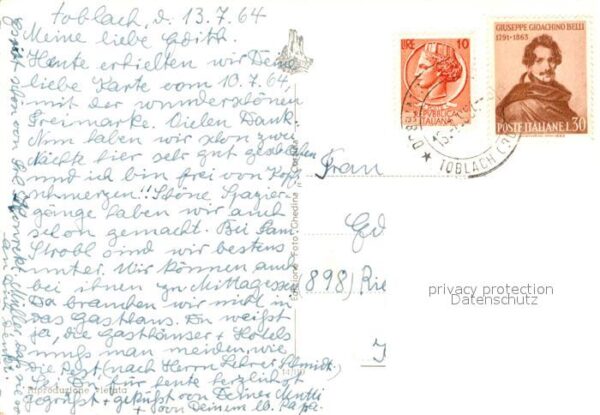 Toblach, d. 13.7.64
Meine liebe Edith.
Heute erhielten wir Deine
liebe Karte vom 10.7.64,
mit der wunderschönen
Freimarke. Vielen Dank.
Nun haben wir schon zwei
Nächte hier sehr gut geschlafen
und ich bin frei von Kopf-
schmerzen!! Schöne Spazier-
gänge haben wir auch
schon gemacht. Bei Fam.
Strobl sind wir bestens
unter. Wir können auch
bei ihnen zu Mittagessen
Da brauchen wir nicht in
das Gasthaus. Du weißt
ja, die Gasthäuser + Hotels
muß man meiden, wie
die Pest (nach Herrn Lehrer Schmidt.)
So, Du für heute herzlichst
gegrüßt + geküßt von Deiner Mutti
+ von Deinem lb. Papa.
Riproduzione vietata
Edizione Foto Ghedina
LIRE 10
REPUBBLICA
ITALIANA
GIUSEPPE GIOACHINO BELLI
1791-1863
POSTE ITALIANE L.30
TOBLACH
Frau
Ed
(898) Rie
privacy protection
Datenschutz